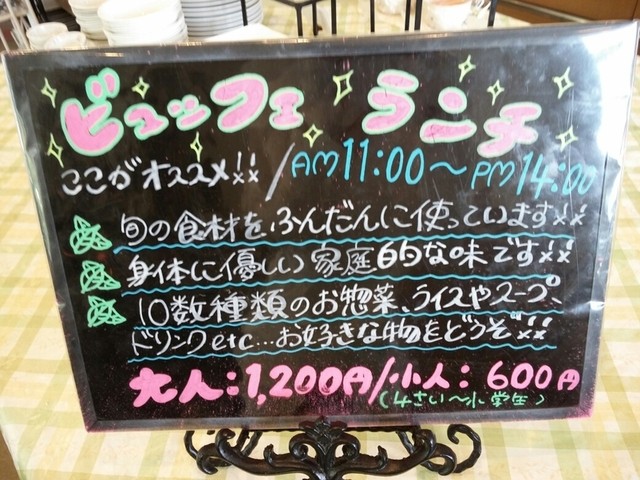 ビュッフェ ランチ
ここがオススメ!! / AM11:00～PM14:00
旬の食材を、ふんだんに使っています!!
身体に優しい家庭的な味です!!
10数種類のお惣菜、ライスやスープ、
ドリンクetc…お好きな物をどうぞ!!
大人:1,200円/小人:600円
(4さい～小学生)